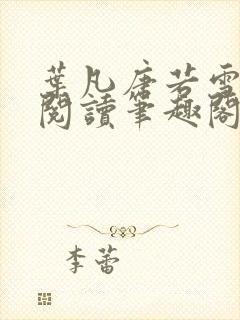 葉凡唐若雪
閱讀筆趣閣
李蕾